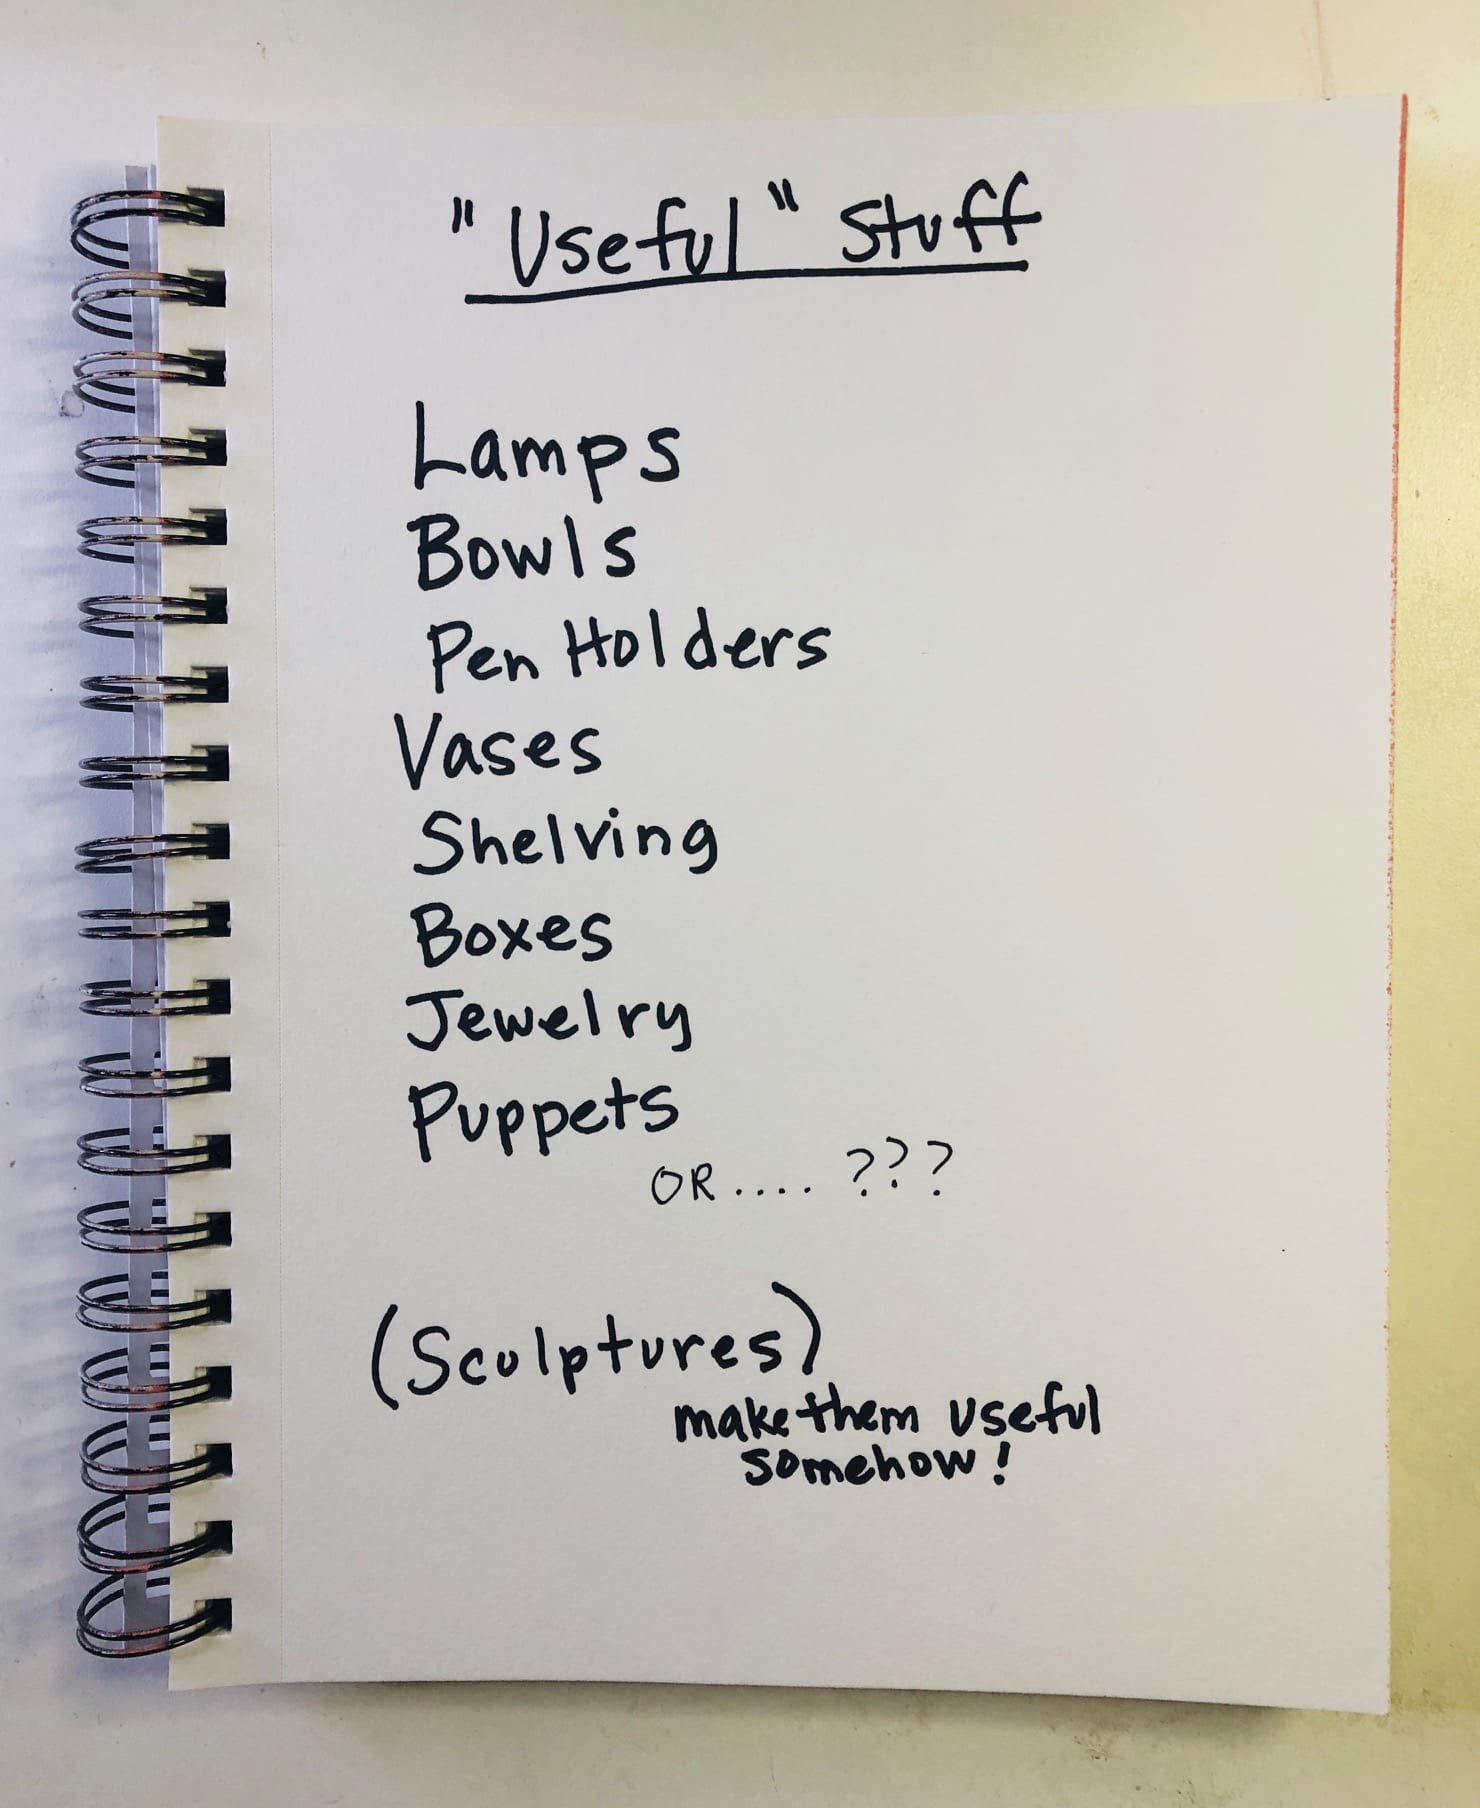 "Useful" Stuff
Lamps
Bowls
Pen Holders
Vases
Shelving
Boxes
Jewelry
Puppets
OR.... ???
(Sculptures)
make them useful
somehow!